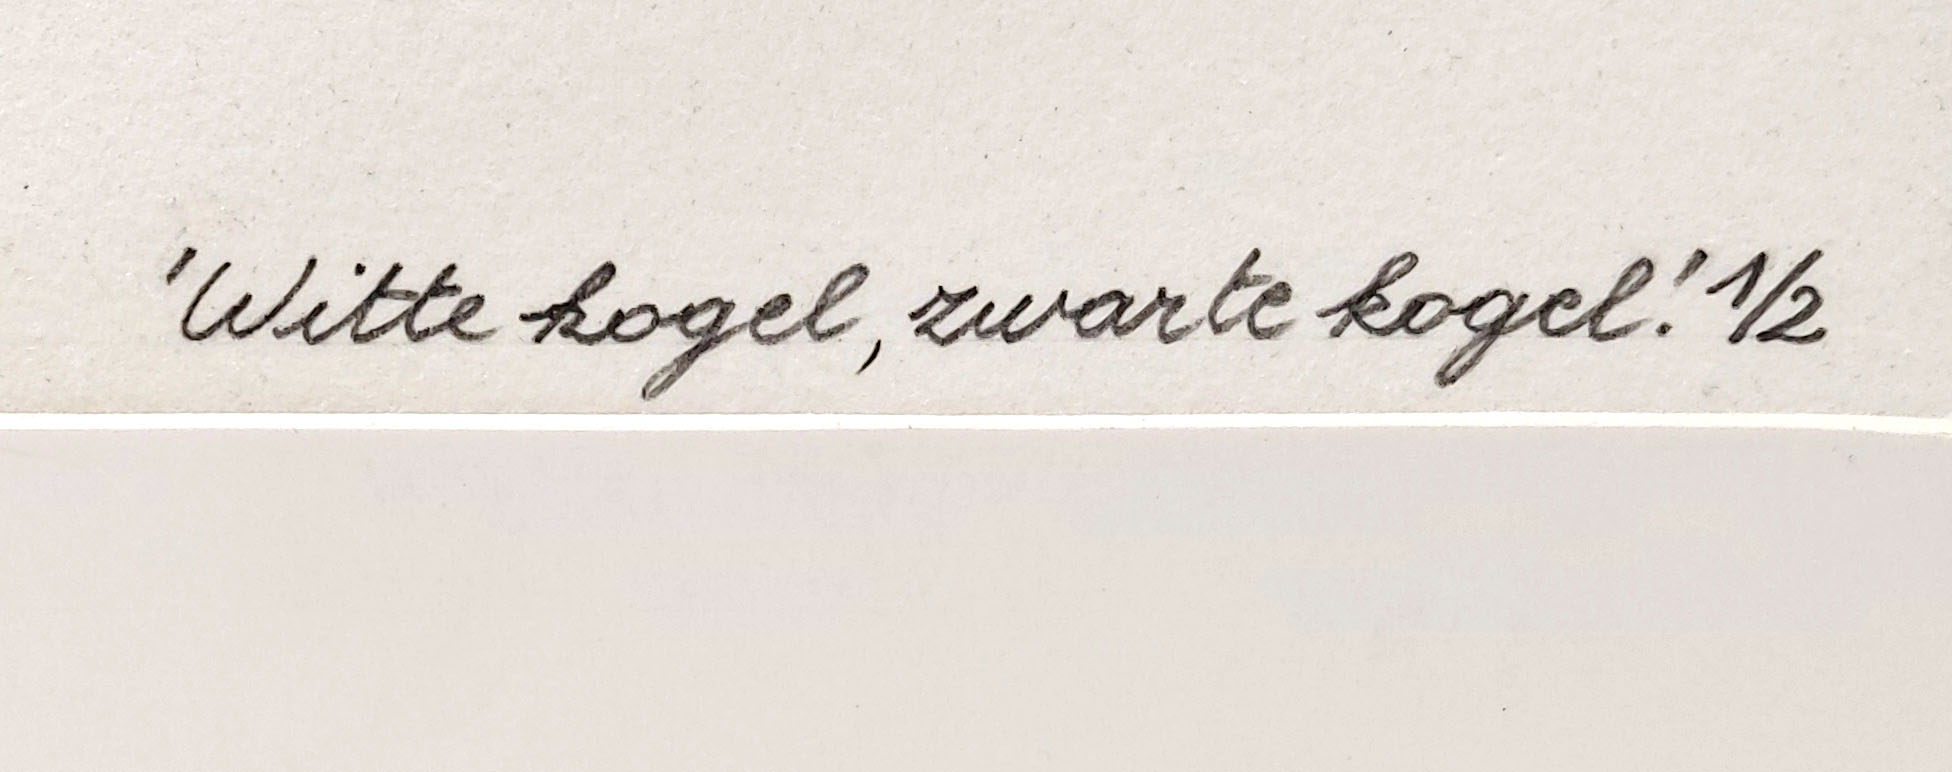 'Witte kogel, zwarte kogel.' 1/2